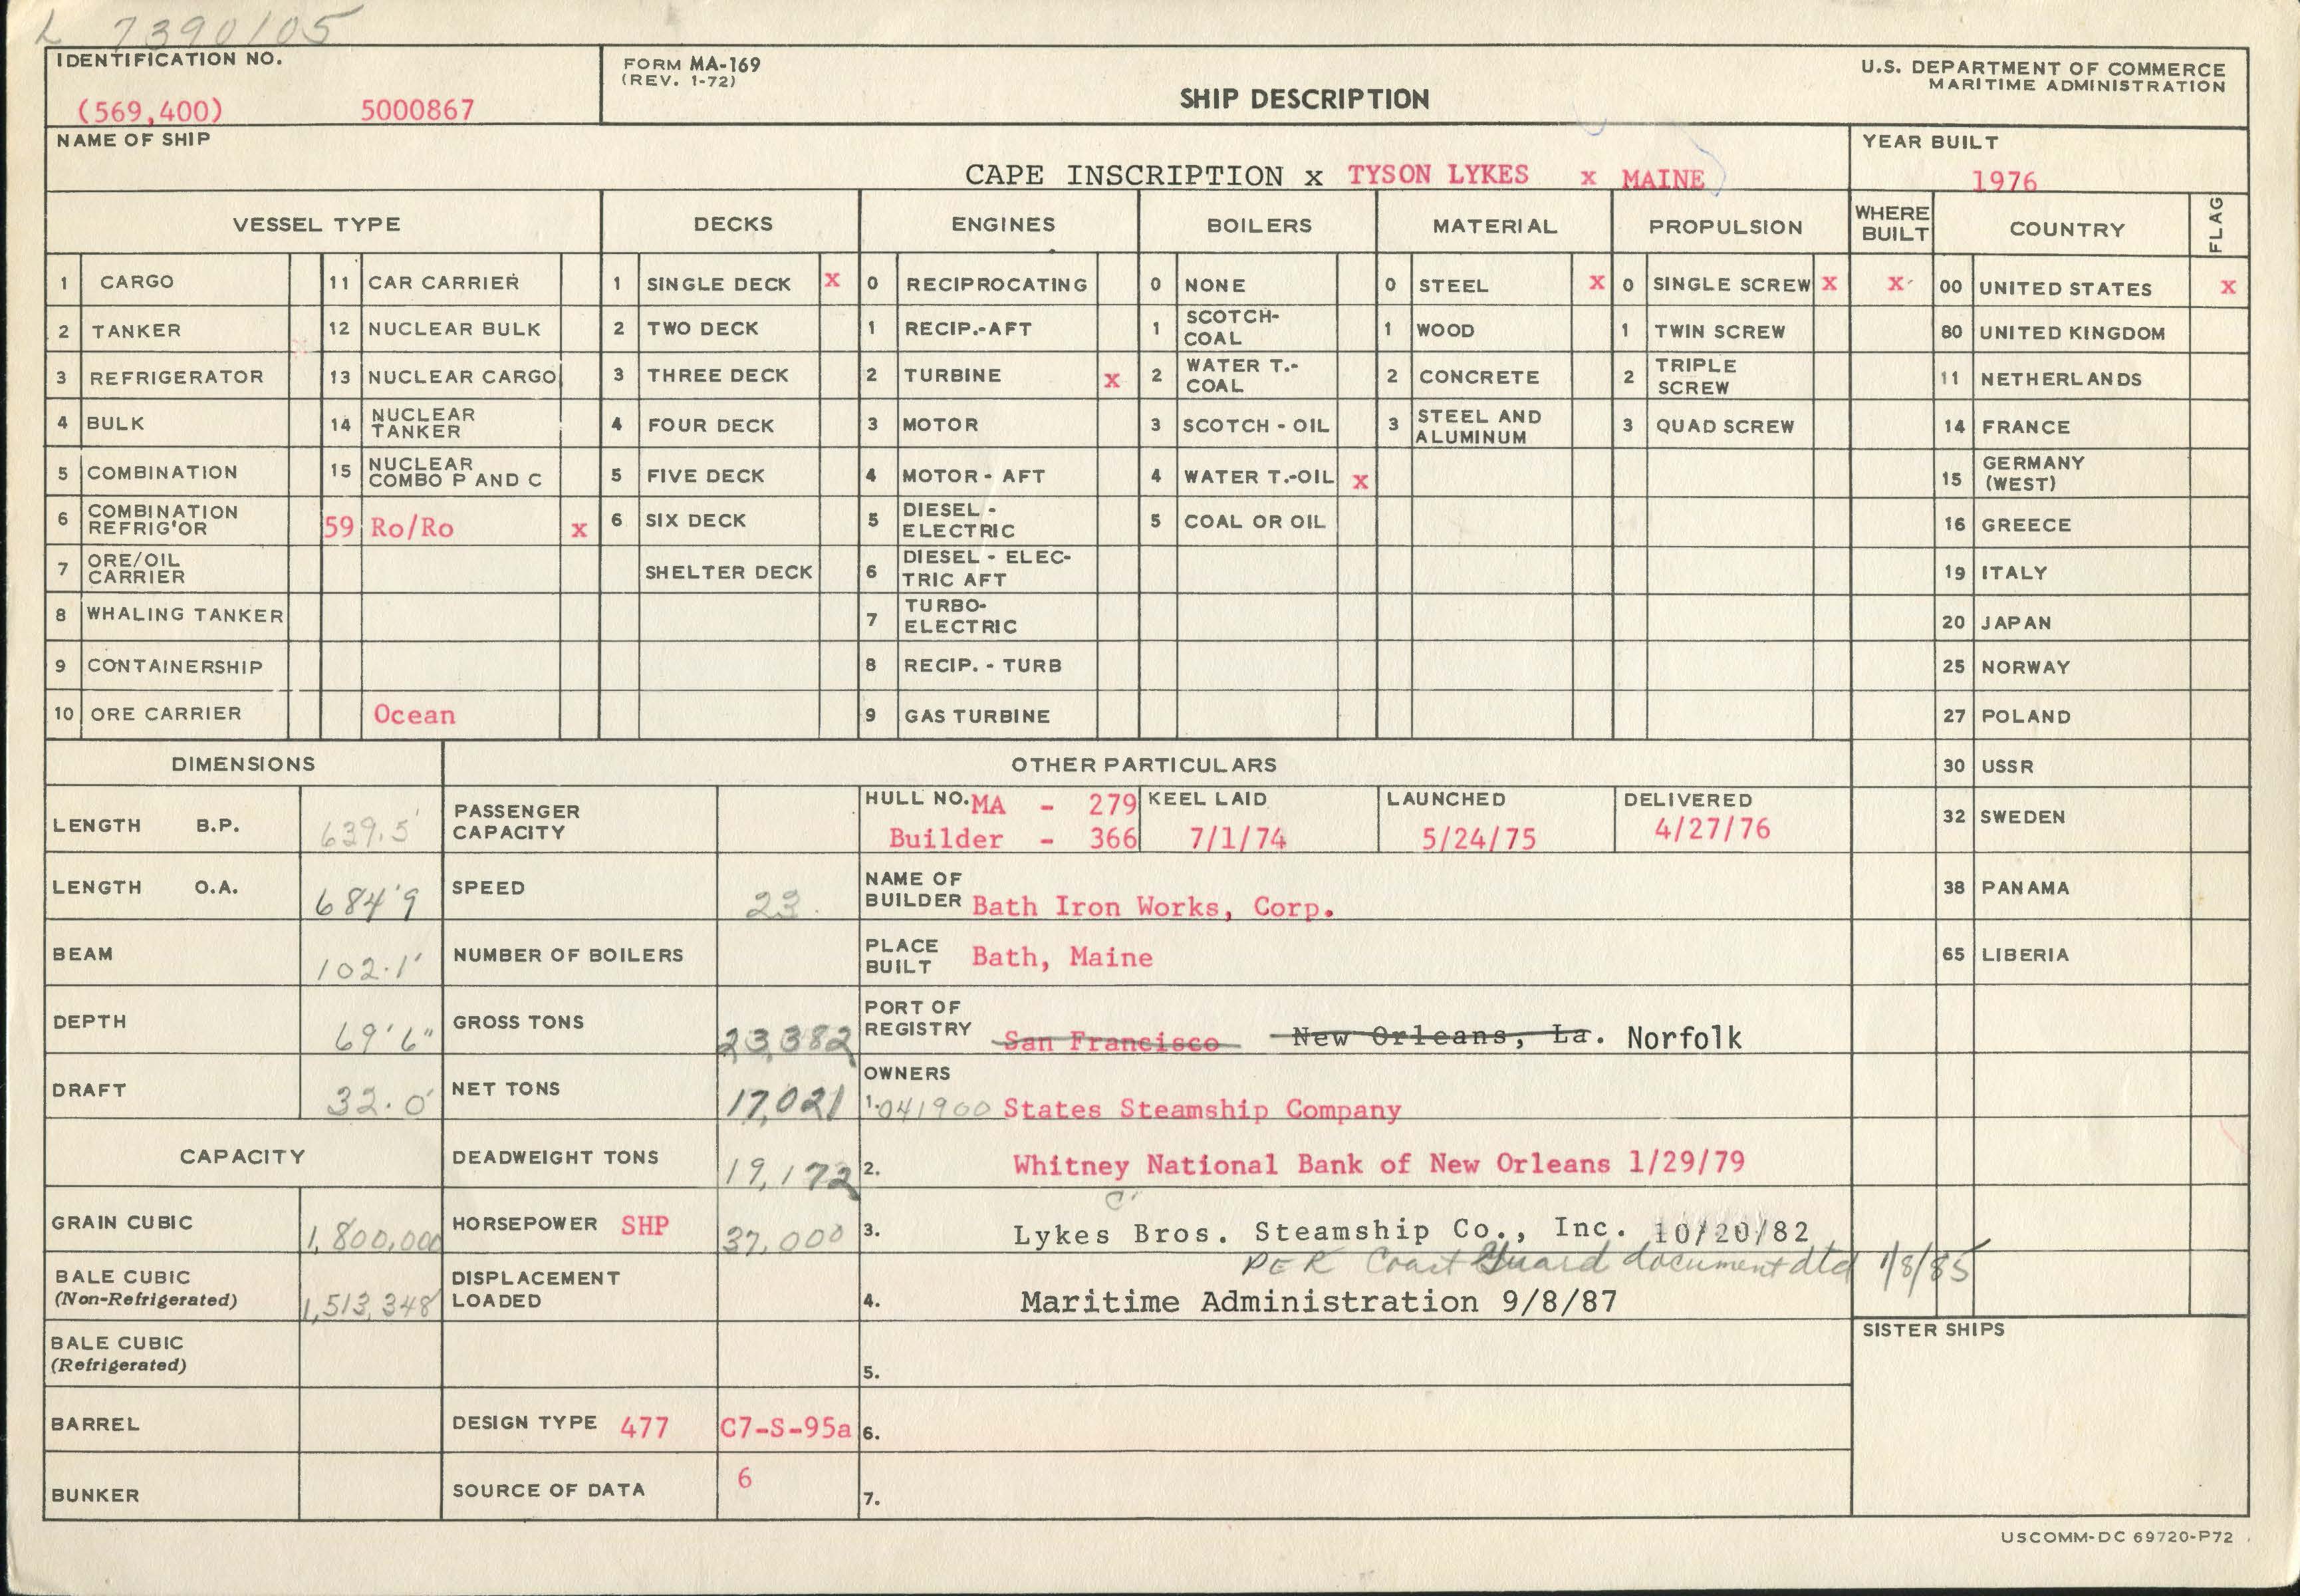 L 7390105
IDENTIFICATION NO.
(569,400) 5000867
FORM MA-169
(REV. 1-72)
SHIP DESCRIPTION
U.S. DEPARTMENT OF COMMERCE
MARITIME ADMINISTRATION
NAME OF SHIP
CAPE INSCRIPTION x TYSON LYKES x MAINE
YEAR BUILT
1976
VESSEL TYPE DECKS ENGINES BOILERS MATERIAL PROPULSION WHERE BUILT COUNTRY FLAG
1 CARGO 11 CAR CARRIER 1 SINGLE DECK x 0 RECIPROCATING 0 NONE 0 STEEL x 0 SINGLE SCREW x x 00 UNITED STATES x
2 TANKER 12 NUCLEAR BULK 2 TWO DECK 1 RECIP.-AFT 1 SCOTCH-COAL 1 WOOD 1 TWIN SCREW 80 UNITED KINGDOM
3 REFRIGERATOR 13 NUCLEAR CARGO 3 THREE DECK 2 TURBINE x 2 WATER T.-COAL 2 CONCRETE 2 TRIPLE SCREW 11 NETHERLANDS
4 BULK 14 NUCLEAR TANKER 4 FOUR DECK 3 MOTOR 3 SCOTCH - OIL 3 STEEL AND ALUMINUM 3 QUAD SCREW 14 FRANCE
5 COMBINATION 15 NUCLEAR COMBO P AND C 5 FIVE DECK 4 MOTOR - AFT 4 WATER T.-OIL x 15 GERMANY (WEST)
6 COMBINATION REFRIG'OR 59 Ro/Ro x 6 SIX DECK 5 DIESEL - ELECTRIC 5 COAL OR OIL 16 GREECE
7 ORE/OIL CARRIER SHELTER DECK 6 DIESEL - ELEC-TRIC AFT 19 ITALY
8 WHALING TANKER 7 TURBO-ELECTRIC 20 JAPAN
9 CONTAINERSHIP 8 RECIP. - TURB 25 NORWAY
10 ORE CARRIER Ocean 9 GAS TURBINE 27 POLAND
DIMENSIONS OTHER PARTICULARS 30 USSR
LENGTH B.P. 639.5' PASSENGER CAPACITY
HULL NO. MA - 279
Builder - 366
KEEL LAID
7/1/74
LAUNCHED
5/24/75
DELIVERED
4/27/76
32 SWEDEN
LENGTH O.A. 684'9 SPEED 23. NAME OF BUILDER Bath Iron Works, Corp. 38 PANAMA
BEAM 102.1' NUMBER OF BOILERS PLACE BUILT Bath, Maine 65 LIBERIA
DEPTH 69'6" GROSS TONS 23,382 PORT OF REGISTRY San Francisco New Orleans, La. Norfolk
DRAFT 32.0' NET TONS 17,021 OWNERS
1. 041900 States Steamship Company
CAPACITY DEADWEIGHT TONS 19,172 2. Whitney National Bank of New Orleans 1/29/79
GRAIN CUBIC 1,800,000 HORSEPOWER SHP 37,000 3. Lykes Bros. Steamship Co., Inc. 10/20/82
PER Coast Guard document dtd 1/8/85
BALE CUBIC (Non-Refrigerated) 1,513,348 DISPLACEMENT LOADED 4. Maritime Administration 9/8/87
BALE CUBIC (Refrigerated) 5. SISTER SHIPS
BARREL DESIGN TYPE 477 C7-S-95a 6.
BUNKER SOURCE OF DATA 6 7.
USCOMM-DC 69720-P72